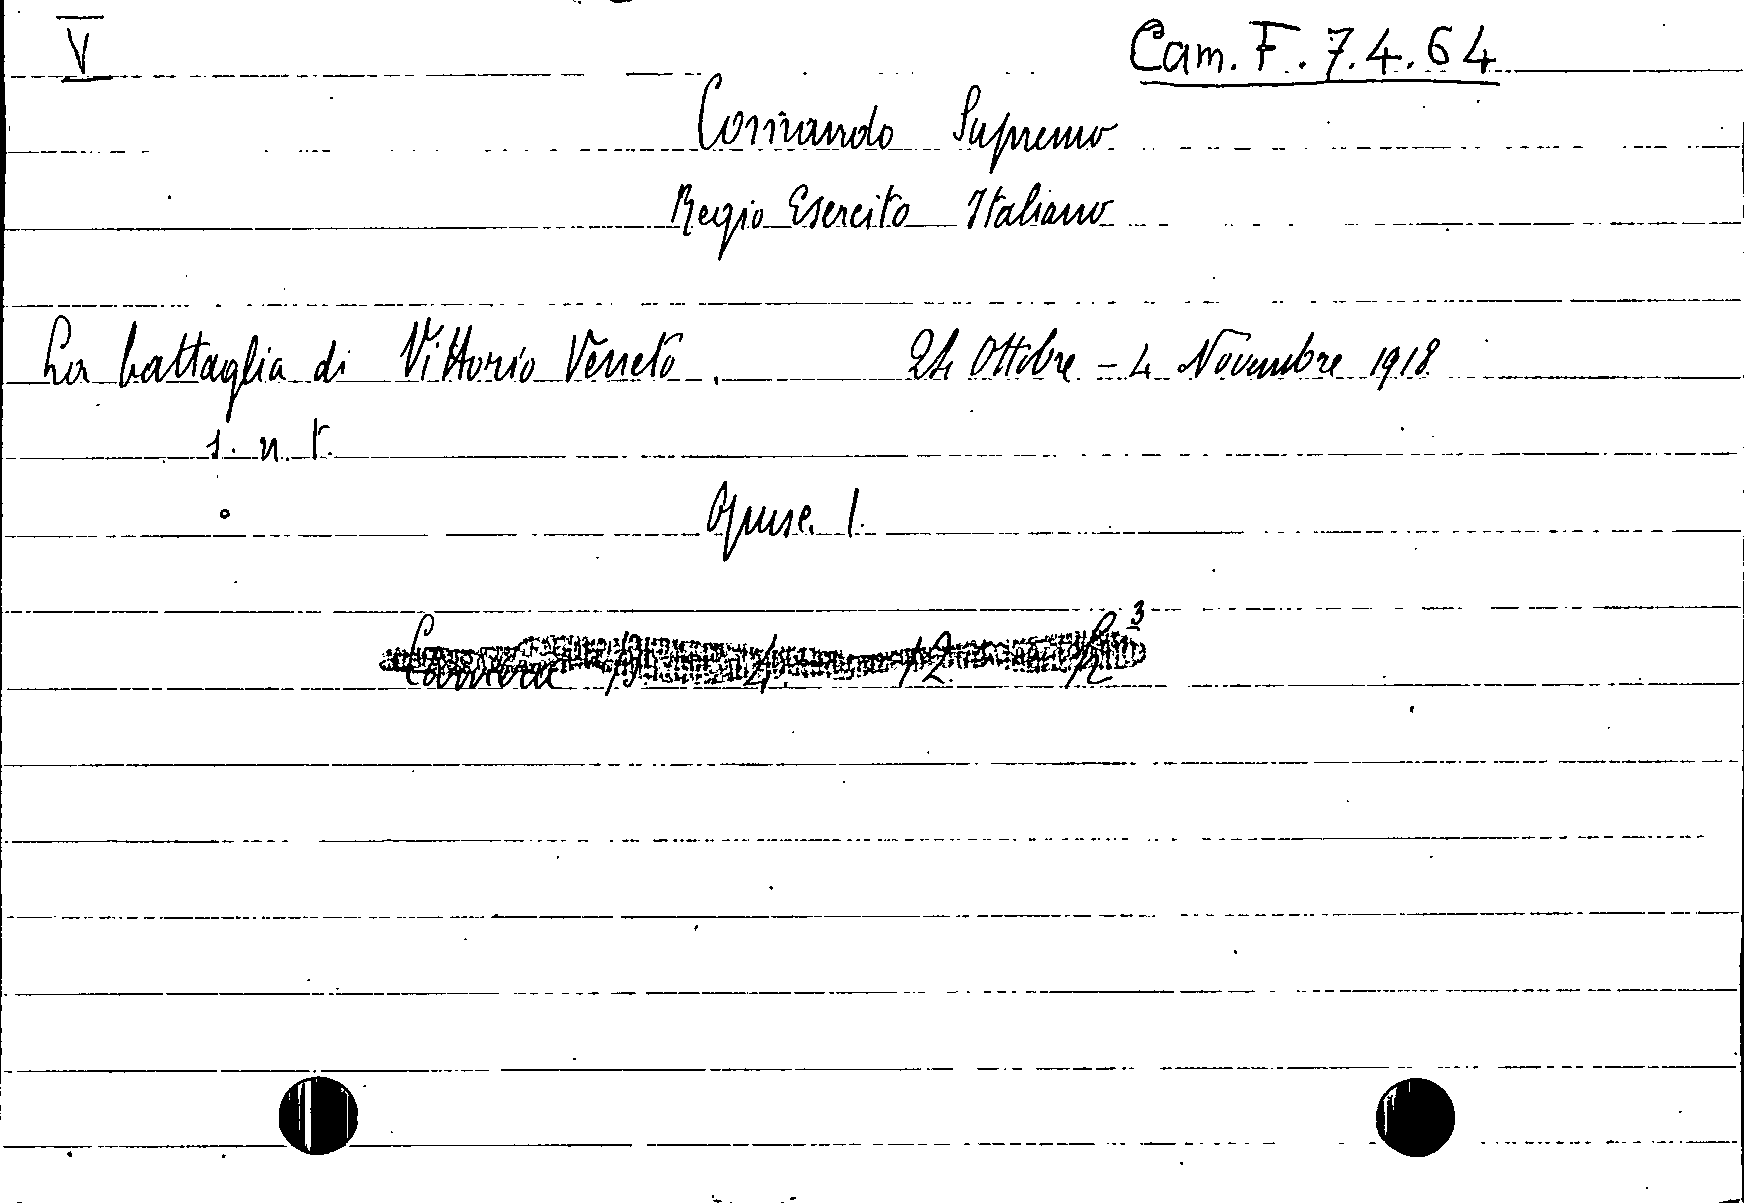 V
Cam. F. 7.4.64
Comando Supremo
Regio Esercito Italiano
La battaglia di Vittorio Veneto. 24 Ottobre - 4 Novembre 1918
s. n. t.
Opusc. 1.
Camera 13 4. 12